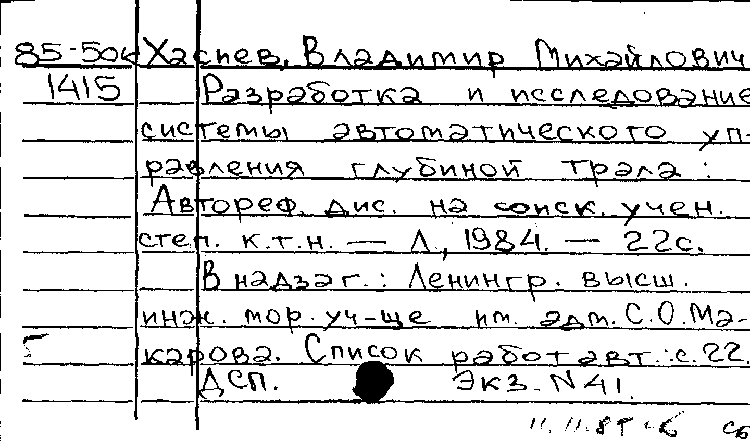 85-50к Хаспев, Владимир Михайлович
1415 Разработка и исследование
системы автоматического уп-
равления глубиной трала :
Автореф. дис. на соиск. учен.
степ. к.т.н. — Л., 1984. — 22с.
В надзаг.: Ленингр. высш.
инж. мор. уч-ще им. адм. С.О.Ма-
карова. Список работ авт.: с.22.
ДСП. Экз. N 41.
11.11.85